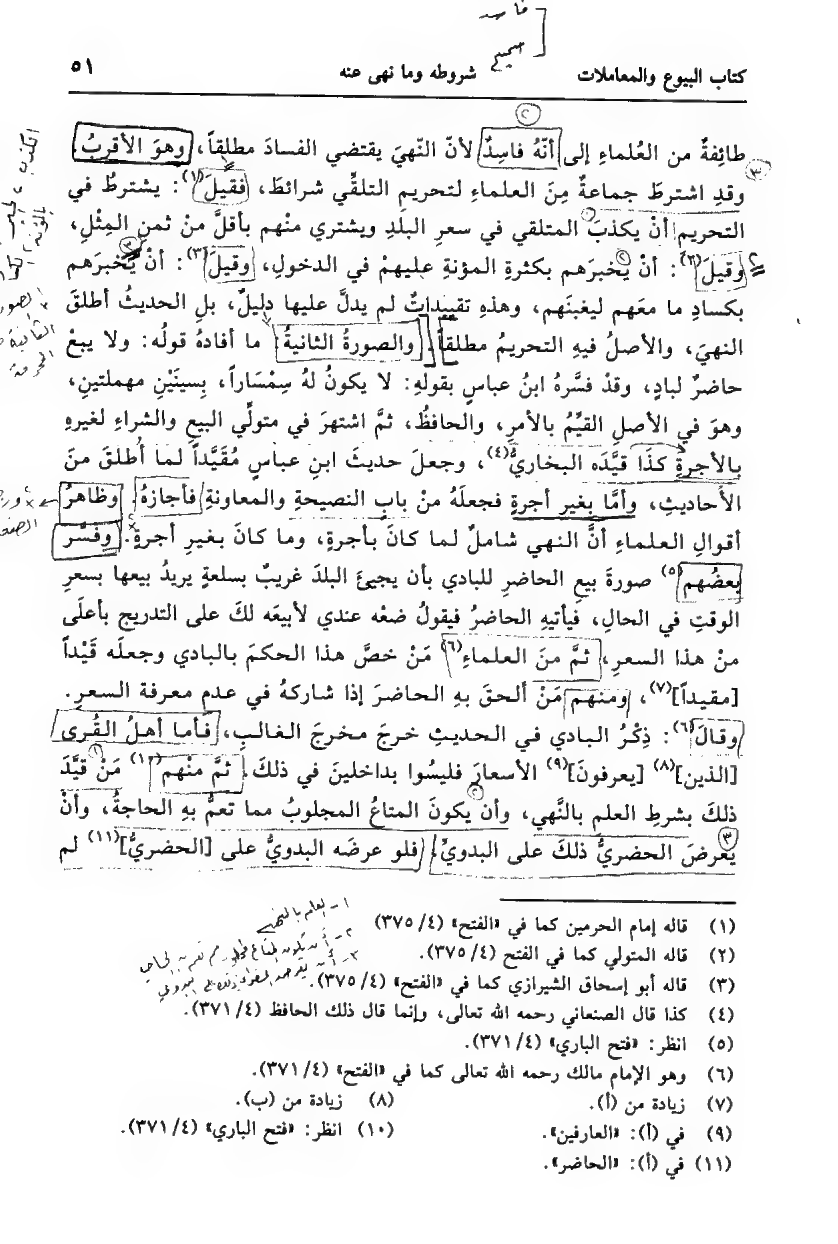 فاسد
صحيح
كتاب البيوع والمعاملات شروطه وما نهى عنه ٥١
طائِفةٌ من العُلماءِ إلى أنَّهُ فاسِدٌ لأنّ النّهيَ يقتضي الفسادَ مطلقاً، وهوَ الأقربُ.
وقدِ اشترطَ جماعةٌ مِنَ العلماءِ لتحريمِ التلقِّي شرائطَ، فقيلَ(١): يشترطُ في
التحريمِ أنْ يكذبَ المتلقي في سعرِ البلدِ ويشتري منْهم بأقلَّ منْ ثمنِ المِثْلِ،
وقيلَ(٢): أنْ يُخبرَهم بكثرةِ المؤنةِ عليهمْ في الدخولِ، وقيلَ(٣): أنْ يُخبرَهم
بكسادِ ما معَهم ليغبنَهم، وهذهِ تقييداتٌ لم يدلَّ عليها دليلٌ، بلِ الحديثُ أطلقَ
النهيَ، والأصلُ فيهِ التحريمُ مطلقاً. والصورةُ الثانيةُ: ما أفادهُ قولُه: ولا يبعْ
حاضرٌ لبادٍ، وقدْ فسَّرهُ ابنُ عباسٍ بقولهِ: لا يكونُ لهُ سِمْسَاراً، بِسينَيْنِ مهملتينِ،
وهوَ في الأصلِ القيِّمُ بالأمرِ، والحافظُ، ثمَّ اشتهرَ في متولِّي البيعِ والشراءِ لغيرهِ
بالأجرةِ كذَا قيَّدَه البخاريُّ(٤)، وجعلَ حديثَ ابنِ عباسٍ مُقَيَّداً لما أُطلقَ منَ
الأحاديثِ، وأمَّا بغيرِ أجرةٍ فجعلَهُ منْ بابِ النصيحةِ والمعاونةِ فأجازهُ. وظاهرُ
أقوالِ العلماءِ أنَّ النهي شاملٌ لما كانَ بأجرةٍ، وما كانَ بغيرِ أجرةٍ. وفسَّر
بعضُهم(٥) صورةَ بيعِ الحاضرِ للبادي بأن يجيئَ البلدَ غريبٌ بسلعةٍ يريدُ بيعها بسعرِ
الوقتِ في الحالِ، فيأتيهِ الحاضرُ فيقولُ ضعْه عندي لأبيعَه لكَ على التدريجِ بأعلَى
منْ هذا السعرِ، ثمَّ منَ العلماءِ(٦) مَنْ خصَّ هذا الحكمَ بالبادي وجعلَه قَيْداً
[مقيداً](٧)، ومنهم مَنْ ألحقَ بهِ الحاضرَ إذا شاركهُ في عدمِ معرفة السعرِ.
وقالَ(٦): ذِكْرُ البادي في الحديثِ خرجَ مخرجَ الغالبِ، فأما أهلُ القُرى
[الذين](٨) [يعرفونَ](٩) الأسعارَ فليسُوا بداخلينَ في ذلكَ. ثمَّ منْهم(١٠) مَنْ قيَّدَ
ذلكَ بشرطِ العلمِ بالنَّهي، وأن يكونَ المتاعُ المجلوبُ مما تعمُّ بهِ الحاجةُ، وأنْ
يَعرضَ الحضريُّ ذلكَ على البدويِّ، فلو عرضَه البدويُّ على [الحضريُّ](١١) لم
١- العلم بالنهي
(١) قاله إمام الحرمين كما في «الفتح» (٣٧٥/٤)
(٢) قاله المتولي كما في الفتح (٣٧٥/٤).
(٣) قاله أبو إسحاق الشيرازي كما في «الفتح» (٣٧٥/٤).
(٤) كذا قال الصنعاني رحمه الله تعالى، وإنما قال ذلك الحافظ (٣٧١/٤).
(٥) انظر: «فتح الباري» (٣٧١/٤).
(٦) وهو الإمام مالك رحمه الله تعالى كما في «الفتح» (٣٧١/٤).
(٧) زيادة من (أ). (٨) زيادة من (ب).
(٩) في (أ): «العارفين». (١٠) انظر: «فتح الباري» (٣٧١/٤).
(١١) في (أ): «الحاضر».